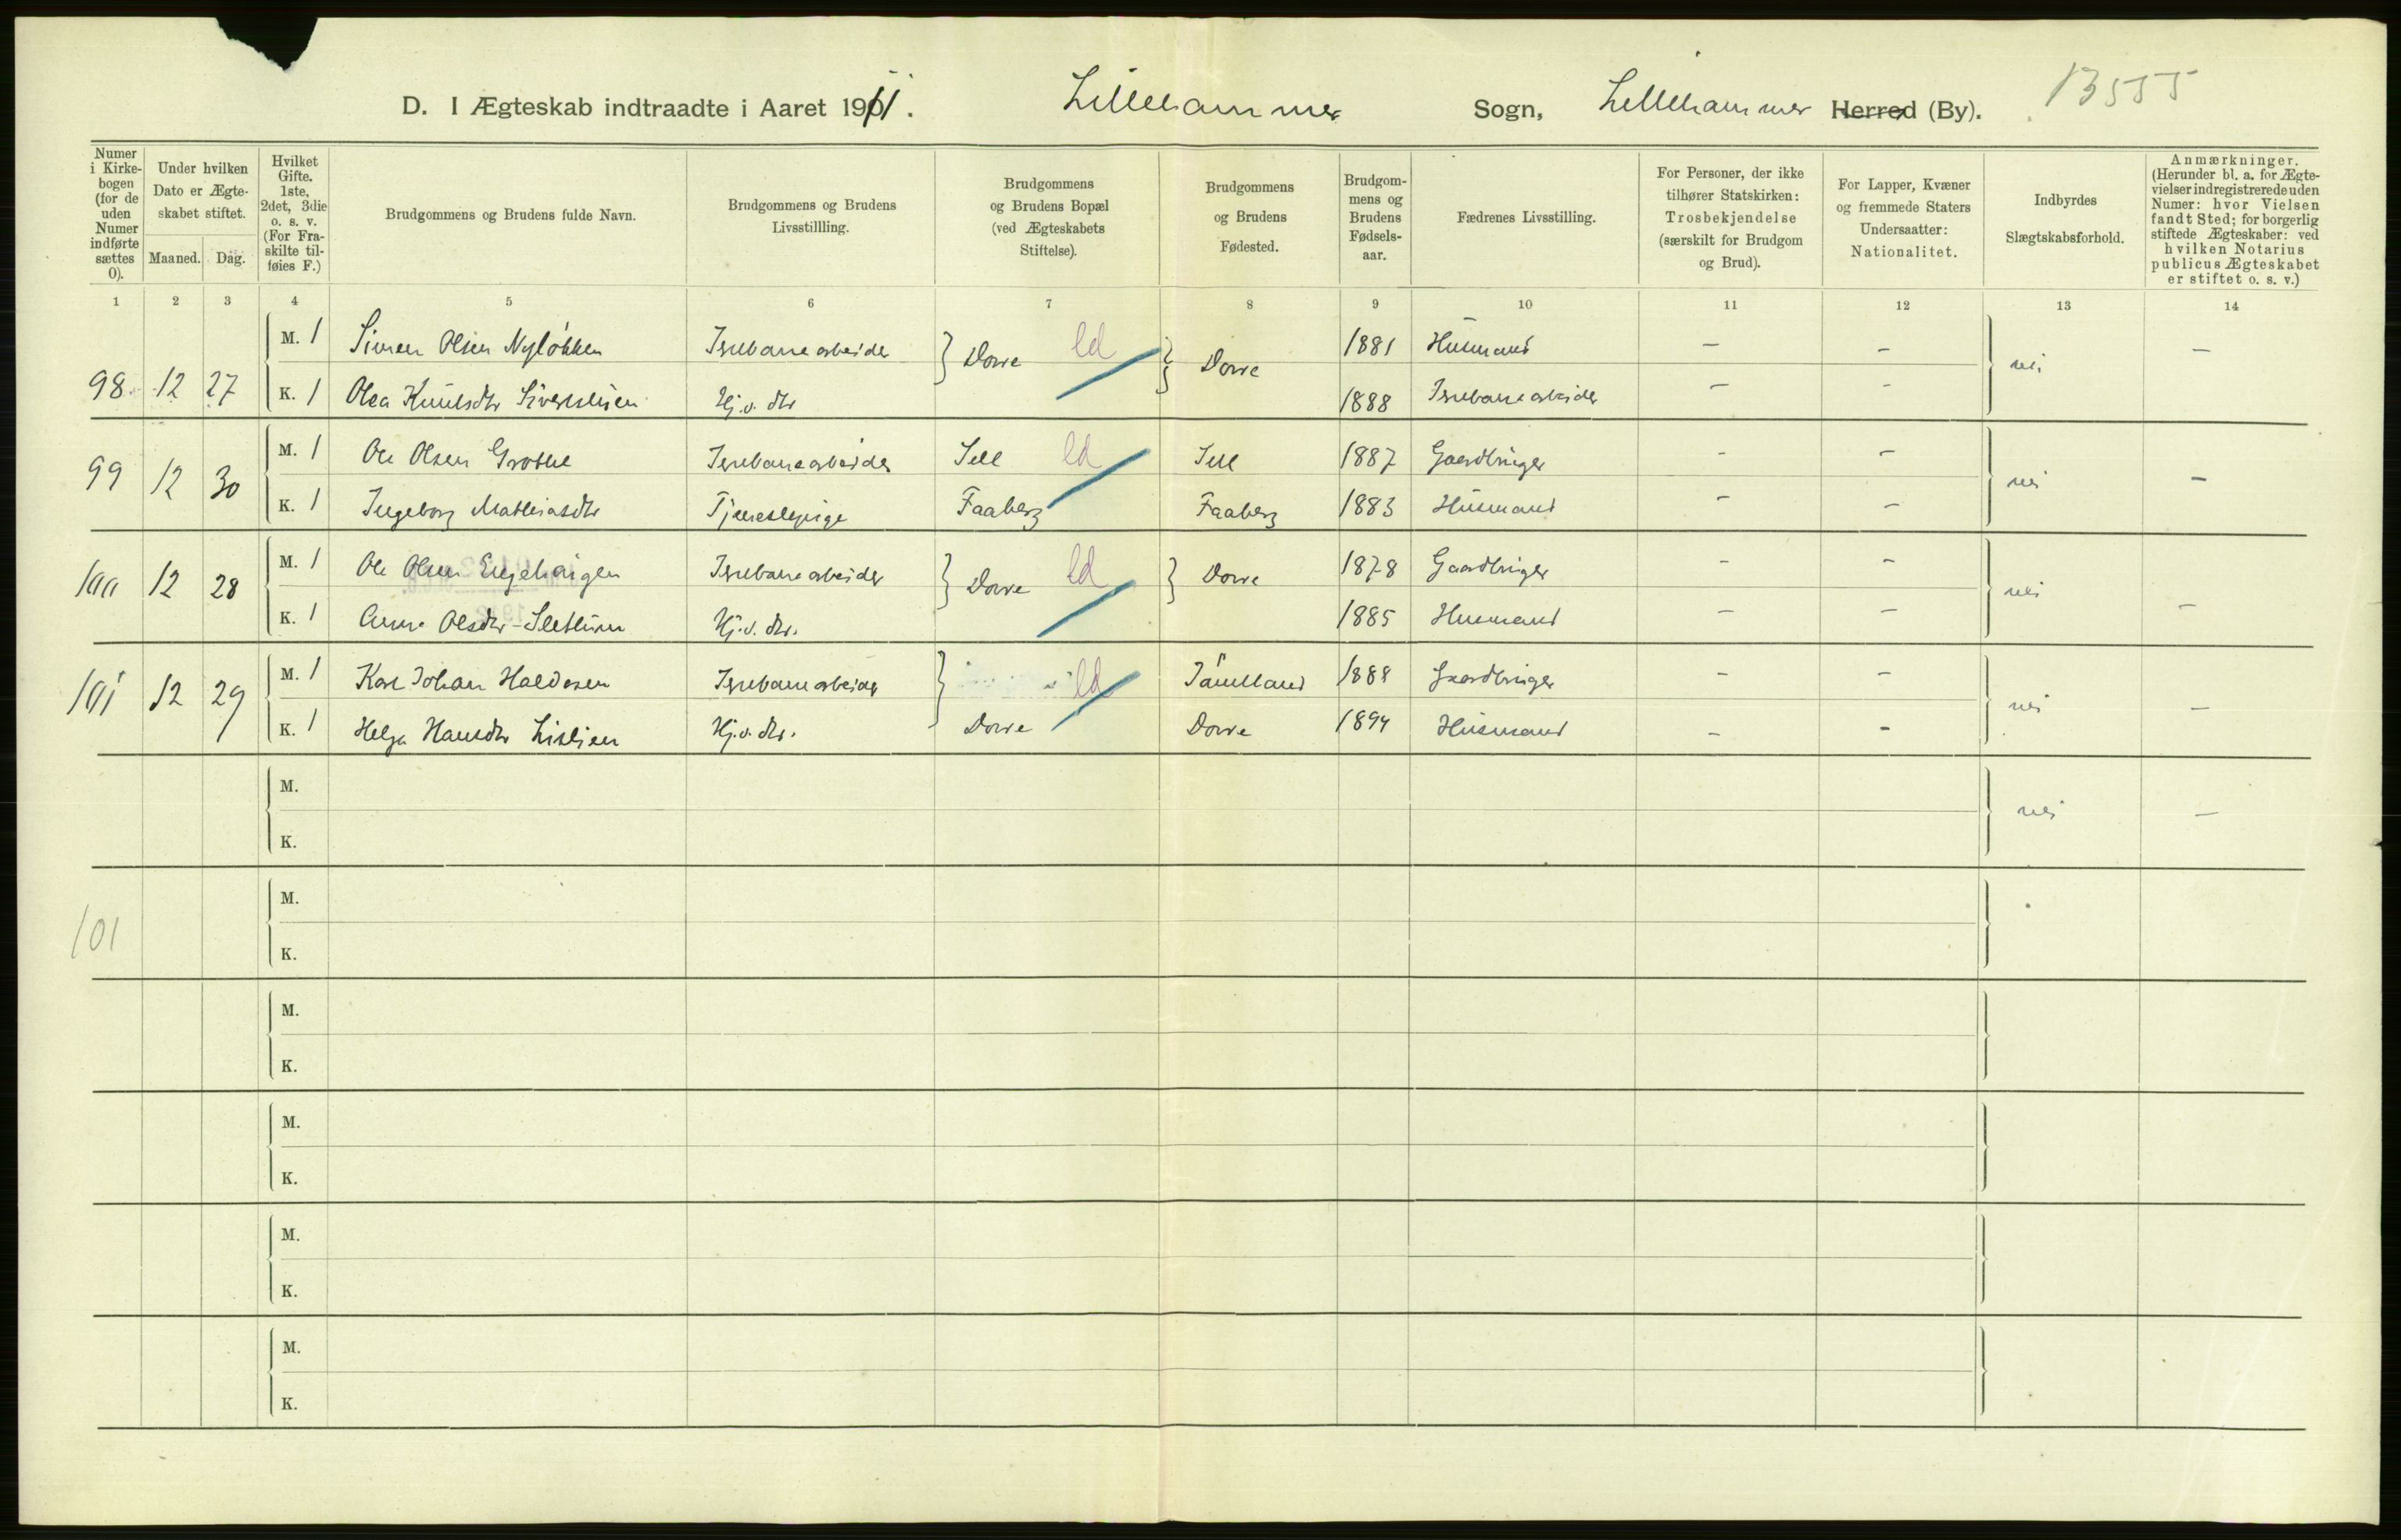 D. I Ægteskab indtraadte i Aaret 1911. Lillehammer Sogn, Lillehammer Herred (By). 13555
Numer i Kirkebogen (for de uden Numer indførte sættes 0).
Under hvilken Dato er Ægteskabet stiftet.
Maaned. Dag.
Hvilket Gifte. 1ste, 2det, 3die o. s. v. (For Fraskilte tilføies F.)
Brudgommens og Brudens fulde Navn.
Brudgommens og Brudens Livsstillling.
Brudgommens og Brudens Bopæl (ved Ægteskabets Stiftelse).
Brudgommens og Brudens Fødested.
Brudgommens og Brudens Fødselsaar.
Fædrenes Livsstilling.
For Personer, der ikke tilhører Statskirken: Trosbekjendelse (særskilt for Brudgom og Brud).
For Lapper, Kvæner og fremmede Staters Undersaatter: Nationalitet.
Indbyrdes Slægtskabsforhold.
Anmærkninger. (Herunder bl. a. for Ægtevielser indregistrerede uden Numer: hvor Vielsen fandt Sted; for borgerlig stiftede Ægteskaber: ved hvilken Notarius publicus Ægteskabet er stiftet o. s. v.)
1 2 3 4 5 6 7 8 9 10 11 12 13 14
M. 1 Simen Olsen Nyløkken Jernbanearbeider Dovre ld Dovre 1881 Husmand – – nei –
98 12 27 K. 1 Olea Knudsdtr Hj.v. dtr 1888 Jernbanearbeider – –
99 12 30 M. 1 Ole Olsen Jernbanearbeider Sell ld Sell 1887 Gaardbruger – – nei –
K. 1 Ingeborg Mathiasdtr Tjenestepige Faaberg Faaberg 1883 Husmand – –
100 12 28 M. 1 Ole Olsen Engehaugen Jernbanearbeider Dovre ld Dovre 1878 Gaardbruger – – nei –
K. 1 Anne Olsdtr Hj.v. dtr. 1885 Husmand – –
101 12 29 M. 1 Karl Johan Jernbanearbeider ld 1888 Gaardbruger – – nei –
K. 1 Helga Hansdtr Hj.v. dtr. Dovre Dovre 1894 Husmand – –
M. nei –
K.
M.
101
K.
M.
K.
M.
K.
M.
K.
M.
K.